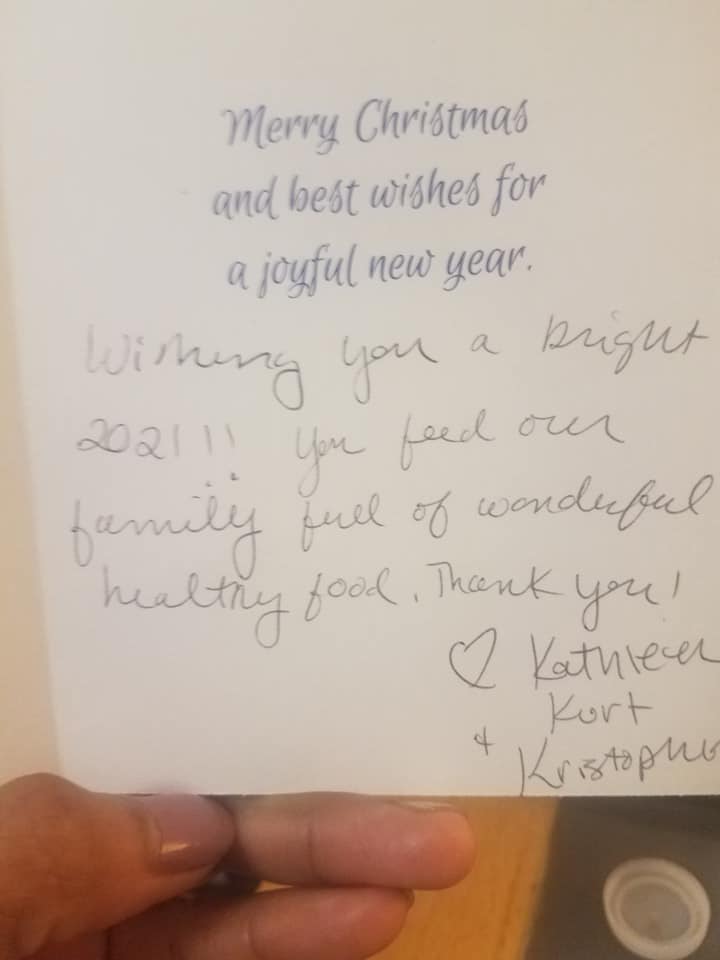 Merry Christmas
and best wishes for
a joyful new year.
Wishing you a bright
2021!!! You feed our
family full of wonderful
healthy food. Thank you!
♡ Kathleen
Kurt
& Kristopher